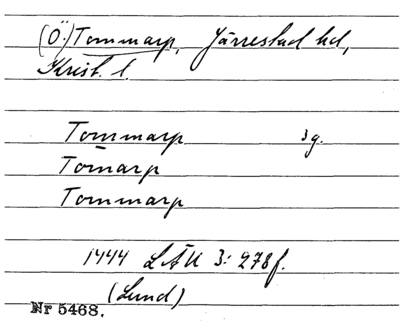 (Ö.) Tommarp, Järrestad hd,
Krist. l.
Tommarp 3 g.
Tom̄arp
Tommarp
1444 LÄU 3: 278 f.
(Lund)
Nr 5468.